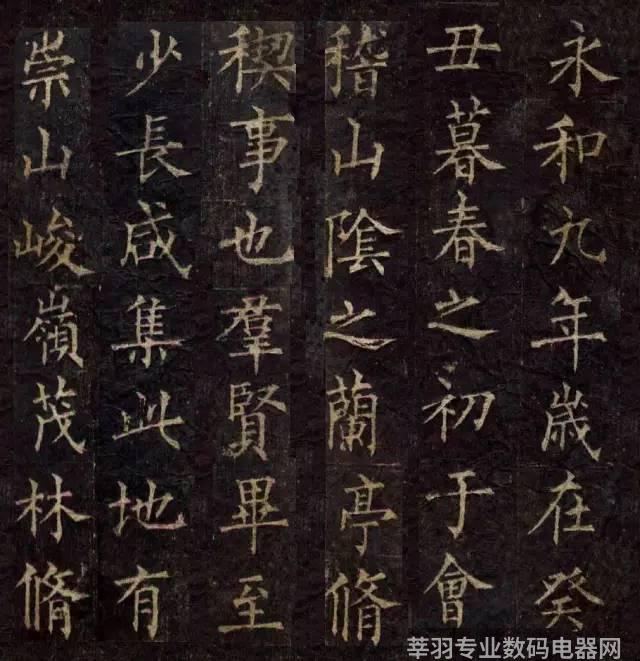 永和九年歲在癸
丑暮春之初于會
稽山陰之蘭亭脩
稧事也羣賢畢至
少長咸集此地有
崇山峻嶺茂林脩
莘羽专业数码电器网